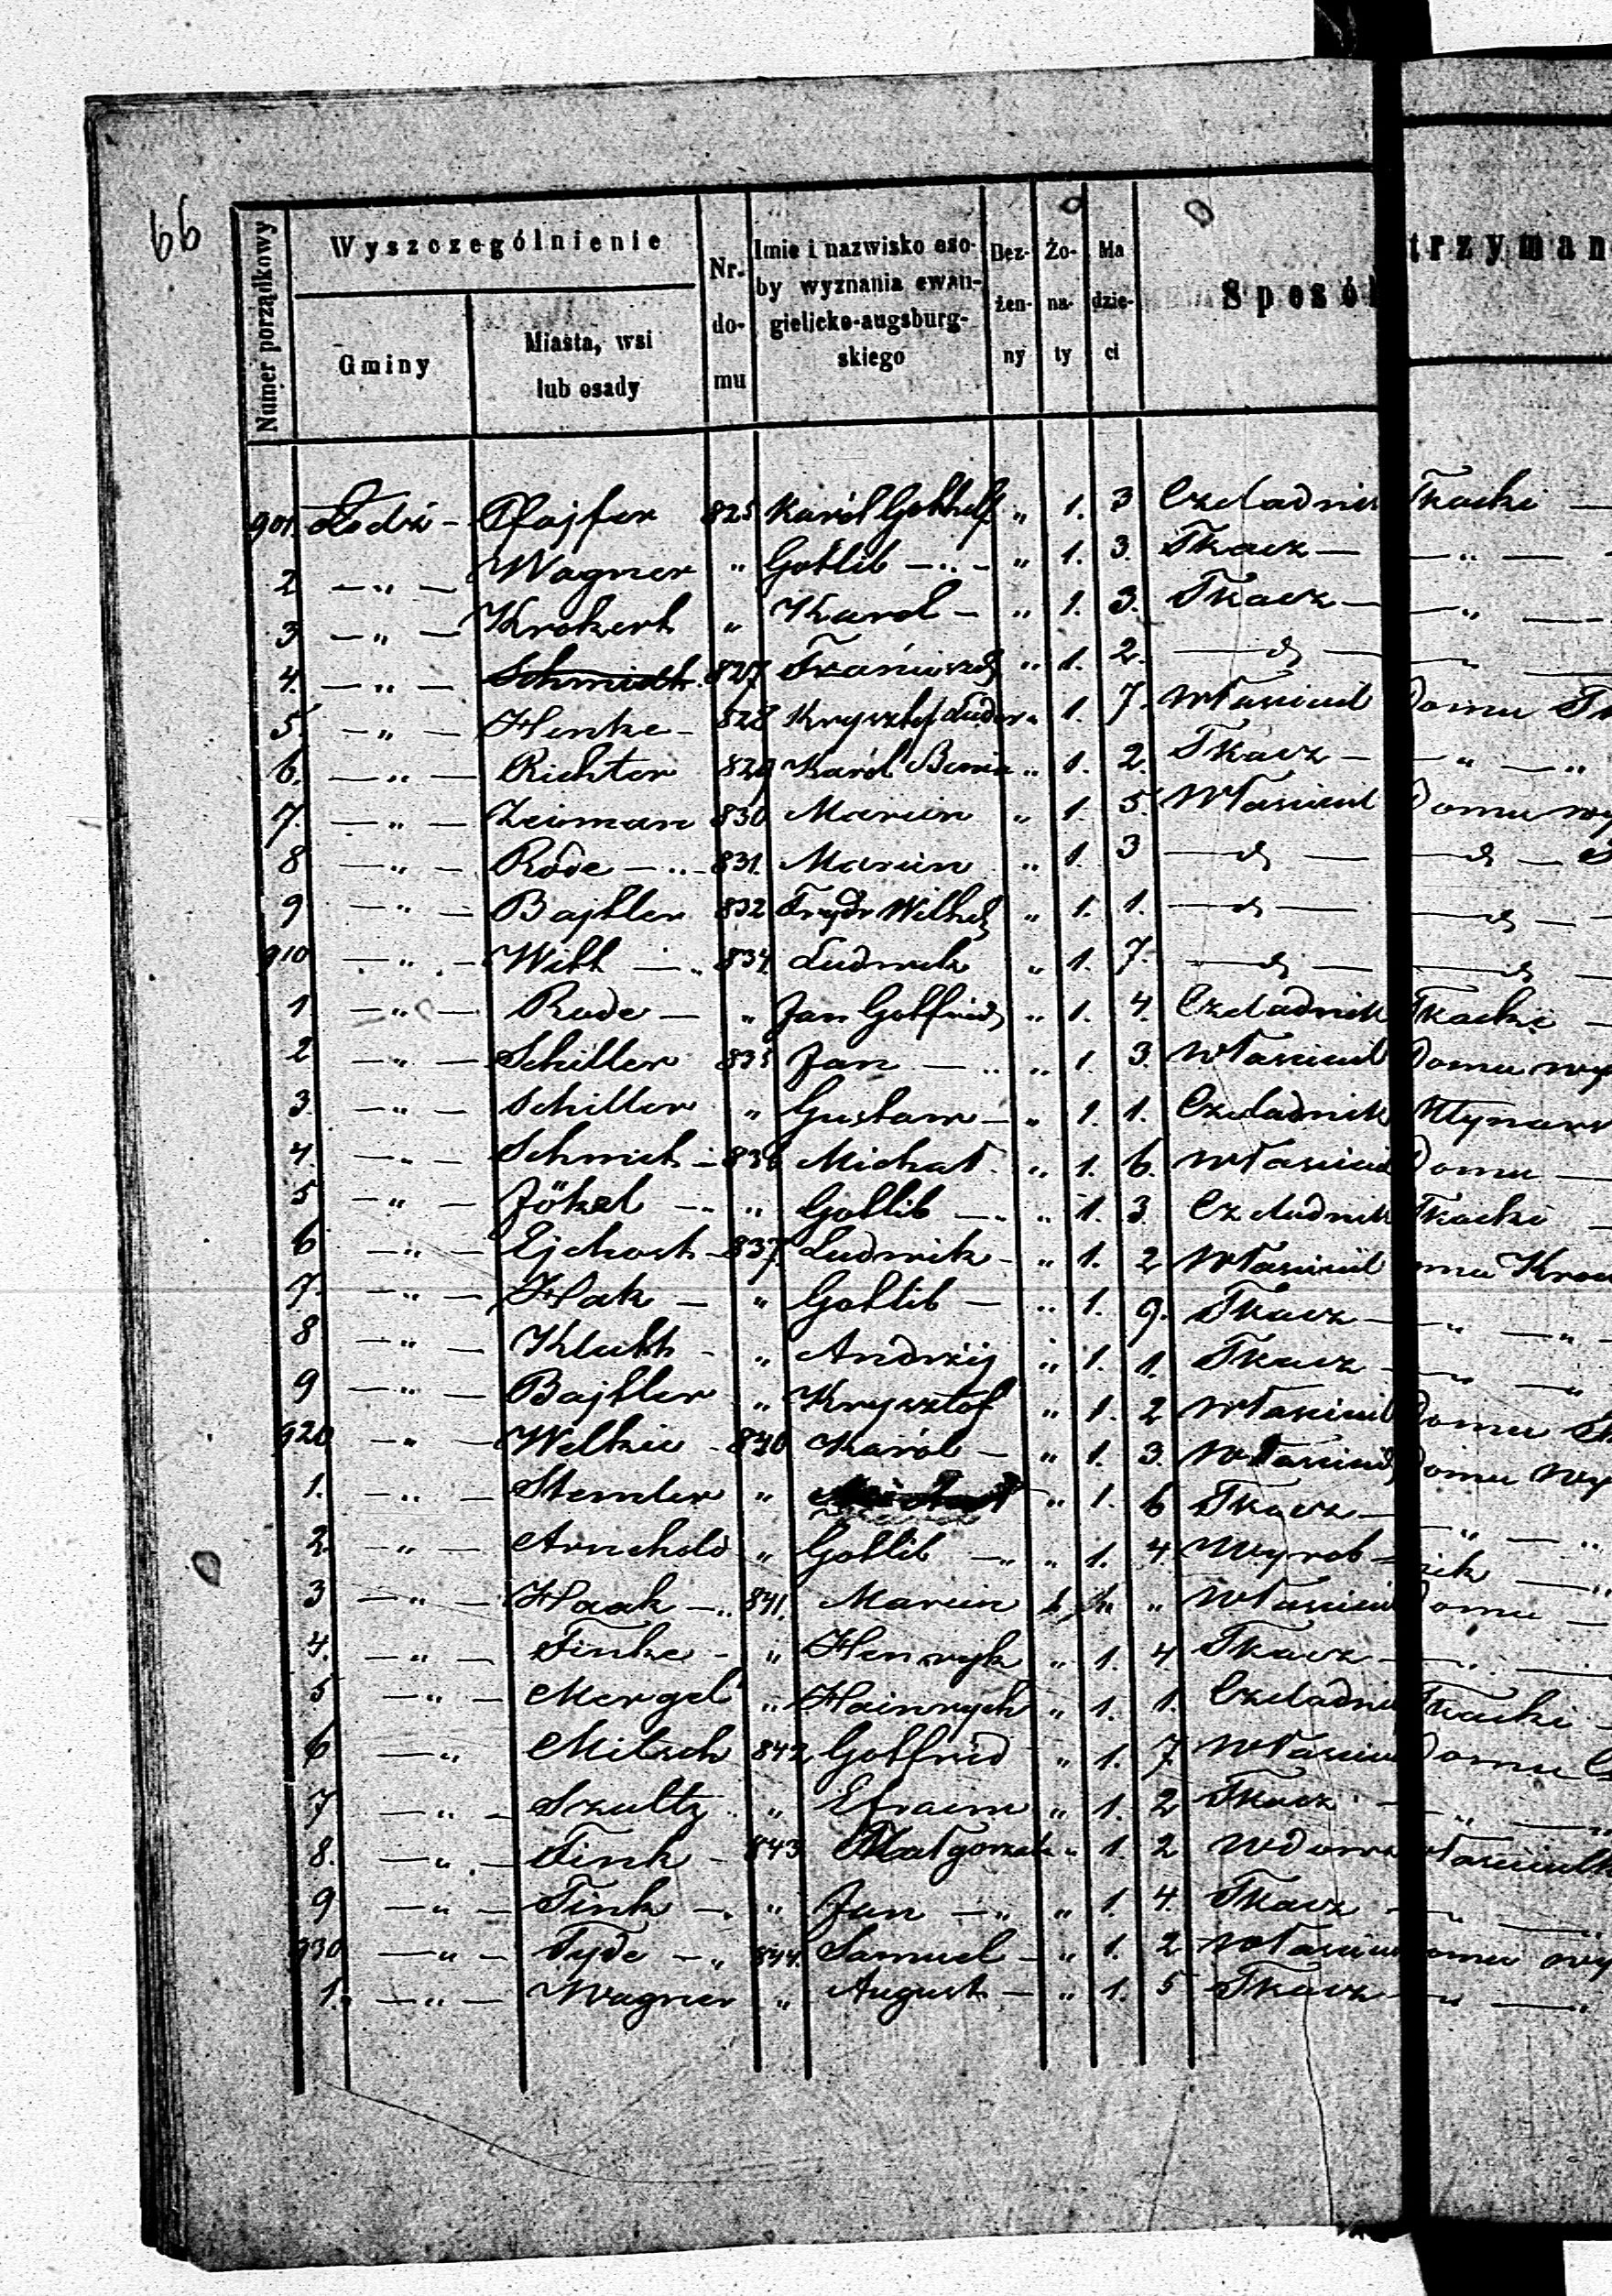 66
Numer porządkowy
Wyszczególnienie
Gminy
Miasta, wsi
lub osady
Nr.
do-
mu
Imie i nazwisko oso-
by wyznania ewan-
gielicko-augsburg-
skiego
Bez-
żen-
ny
Żo-
na-
ty
Ma
dzie-
ci
Sposó
trzyman
901. Łodź - Pfajfer 825 Karól Gotthelf " 1. 3 Czeladnik Tkacki —
2 — " — Wagner " Gotlib — " — " 1. 3. Tkacz — — " —
3 — " — Krokert " Karol — " 1. 3. Tkacz — — " —
4. — " — Schmidt 827 Franciszek " 1. 2. — —
5. — " — Henke - 828 Krysztof Ludw " 1. 7. Własciciel Domu Tk
6. — " — Richter 829 Karól Benia " 1. 2. Tkacz — — " — "
7. — " — Zeiman 830 Marcin " 1. 5. Własciciel Domu wy
8 — " — Rode — " — 831. Marcin " 1. 3 — —
9 — " — Bajtler 832 Frydr Wilhel " 1. 1. — —
910 — " — Witt — " 834 Ludwik " 1. 7. — —
1. — " — Rode — " Jan Gottfried " 1. 4. Czeladnik Tkacki —
2 — " — Schiller 835 Jan — " " 1. 3. Własciciel Domu wy
3. — " — Schiller " Gustaw — " 1. 1. Czeladnik Młynars
4. — " — Schmidt — 836 Michał " 1. 6. Własciciel Domu —
5 — " — Jökel — " " Gottlib — " " 1. 3. Czeladnik Tkacki —
6 — " — Ejchost — 837. Ludwik - " 1. 2 Własciciel omu Kra
7. — " — Hak — " Gottlib — " 1. 9. Tkacz — " — "
8 — " — Klutt - " Andrzéj " 1. 1. Tkacz — " — "
9 — " — Bajtler " Krysztof " 1. 2 Własciciel Domu
920 — " — Welkie - 840 Karól — " 1. 3. Własciciel Domu wy
1. — " — Stemler " " 1. 6 Tkacz — " — "
2. — " — Arnchold " Gottlib — " " 1. 4 Wyrob- nik — "
3 — " — Haak — " 841. Marcin " Własciciel Domu —
4. — " — Finke - " Henryk " 1. 4. Tkacz — " —
5 — " — Mergel " Hainrych " 1. 1. Czeladnik Tkacki —
6 — " Mitsch 842 Gottfrid " 1. 7 Własciciel Domu
7 — " — Szultz " " Efraem " 1. 2 Tkacz — " — "
8. — " — Fink - 843 Małgorzata " 1. 2 Wdowa własciciełk
9 — " — Fink — " Jan — " " 1. 4. Tkacz — " — "
930 — " — Tyde — " 844. Samuel — " 1. 2 Własciciel omu wy
1. — " — Wagner " August — " 1. 5 Tkacz — " — "